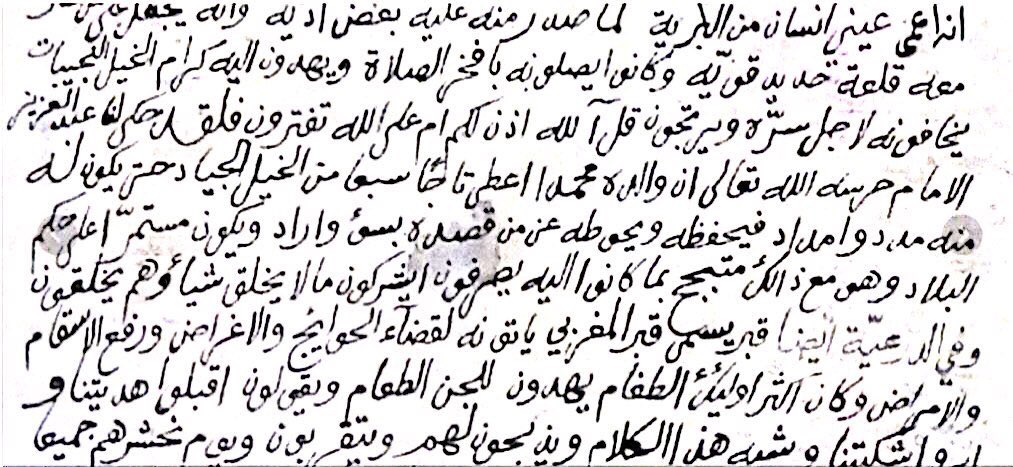 انه اعمى عيني انسان من البرية لما صدر منه عليه بعض اذية وانه يجعل
معه قلعة حديد قوية وكانوا يصلونه بافخر الصلاة ويهدون اليه كرام الخيل النجيبات
يخافونه لاجل سره ويرتجون قل آ لله اذن لكم ام على الله تفترون فلقد حكى لنا عبد العزيز
الامام حرسه الله تعالى ان والده محمدا اعطى تاجا سبعا من الخيل الجياد حتى يكون له
منه مدد وامداد فيحفظه ويحوطه عن من قصده بسؤ واراد ويكون مستمرّا على حكم
البلاد وهو مع ذالك متبجح بما كانوا اليه يصرفون ايشركون مالا يخلق شيأ وهم يخلقون
وفي الدرعيّة ايضا قبر يسمى قبر المغربي ياتونه لقضآء الحوايج والاغراض ورفع الاسقام
والامراض وكان اكثر اولئك الطغام يهدون للجن الطعام ويقولون اقبلوا هديتنا و
وا شكيتنا وشبه هذا الكلام ويذبحون لهم ويتقربون ويوم نحشرهم جميعا